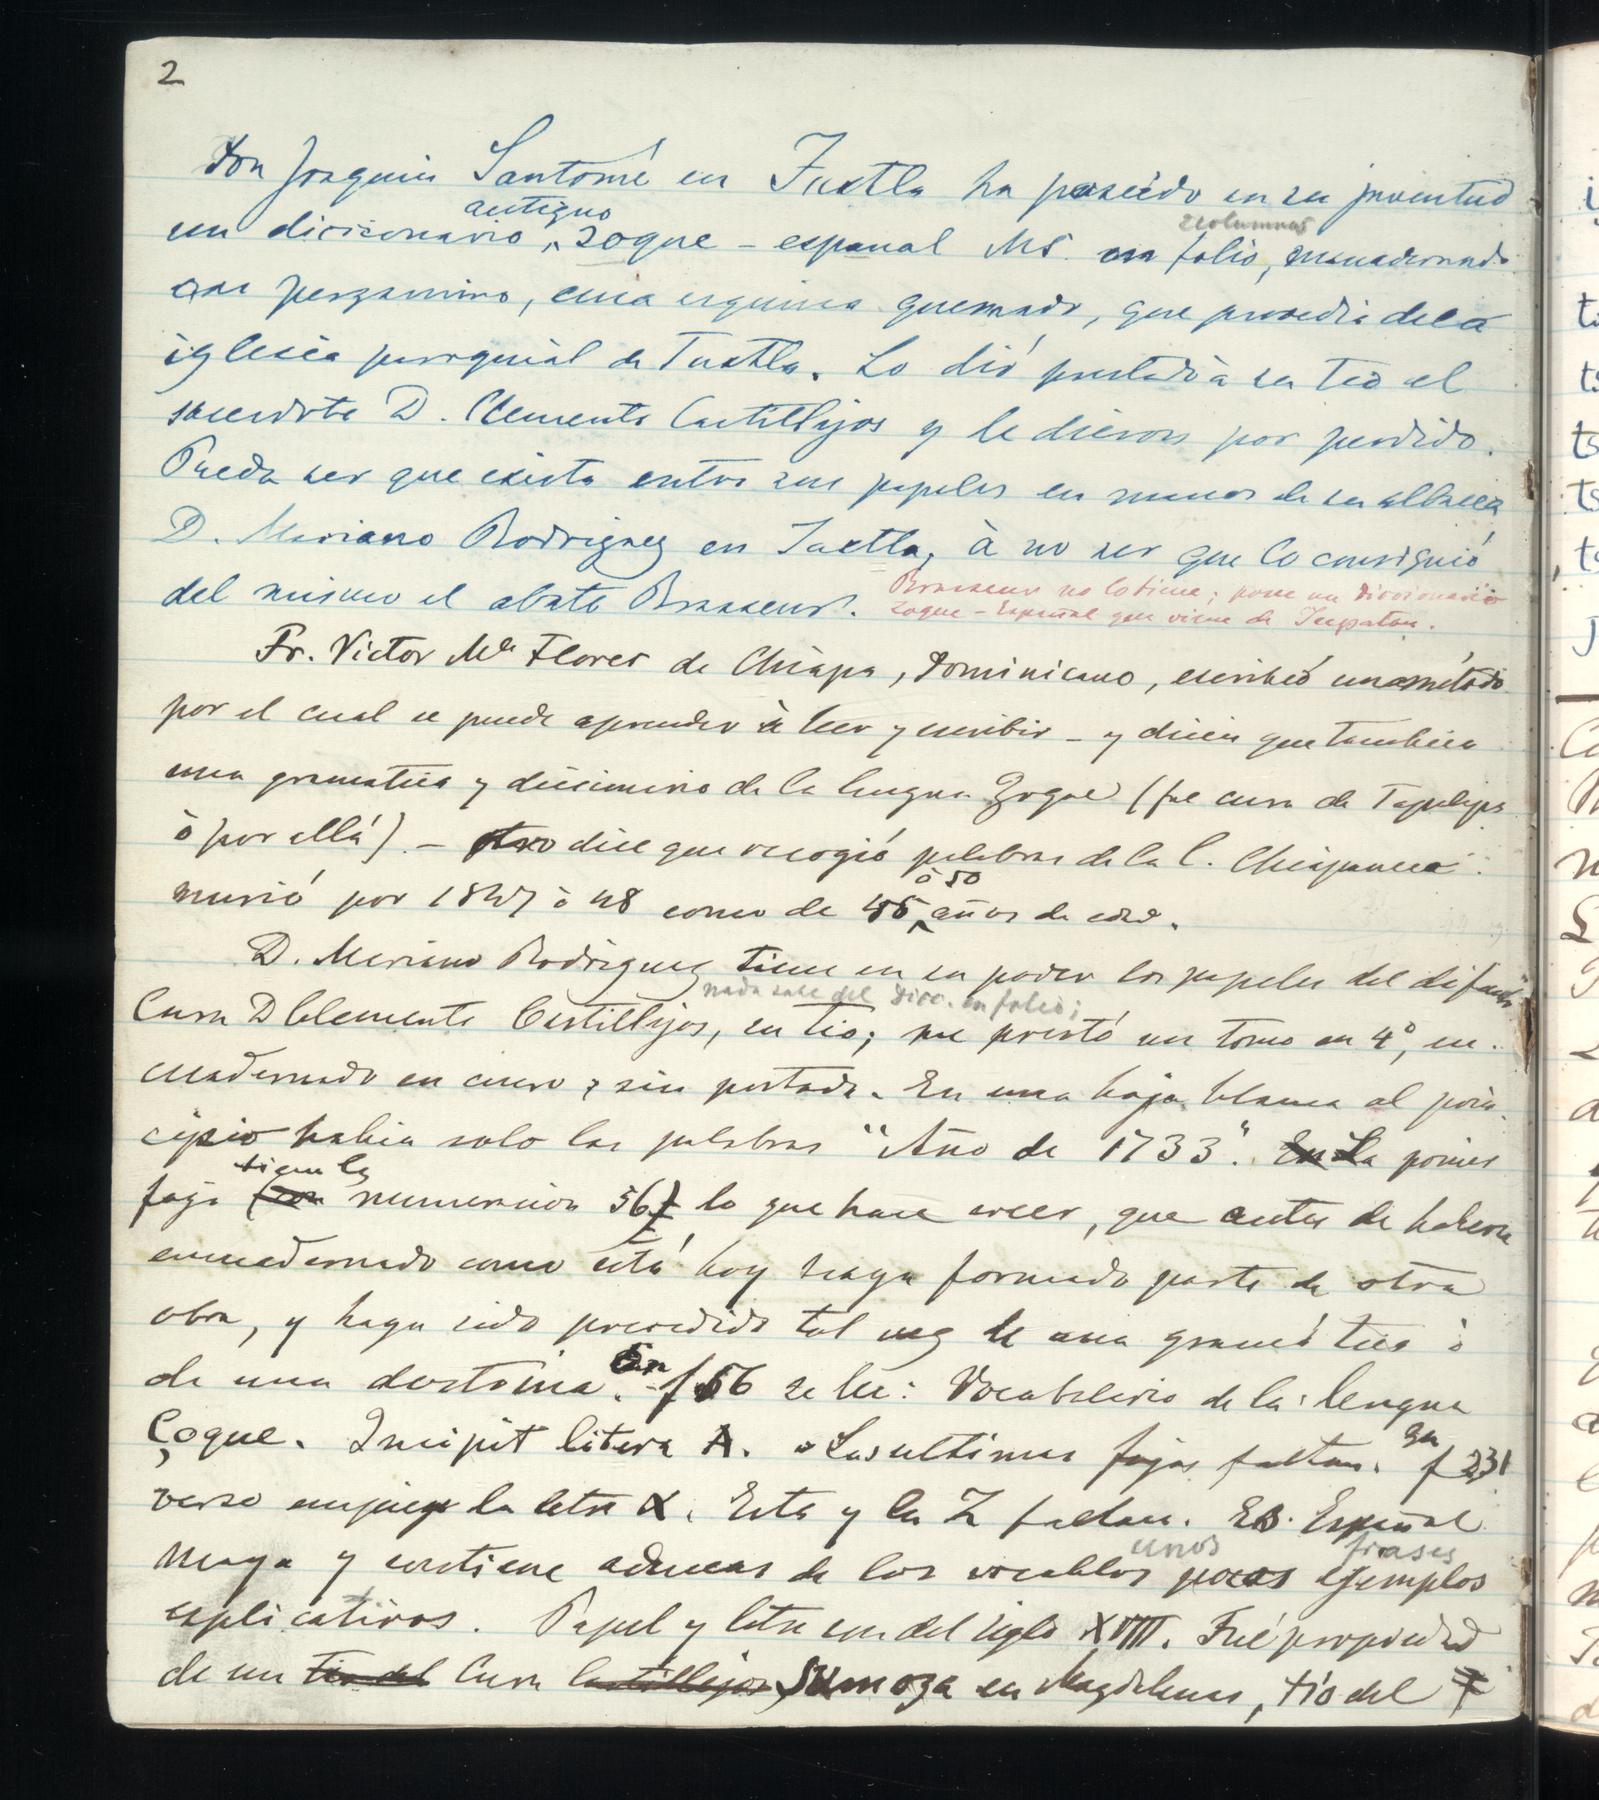 2
Don Joaquin Santomé en Tuxtla ha poseido en su juventud
antiguo
2 columnas
un diccionario, zoque - español MS. en folio, encuadernado
en pergamino, una esquina quemada, que procedia de la
iglesia parroquial de Tuxtla. Lo dió prestado à su tio el
sacerdote D. Clemente Castillejos y le dieron por perdido.
Pueda ser que exista entre sus papeles en manos de su albacea
D. Mariano Rodriguez en Tuxtla, à no ser que lo consiguió
del mismo el abate Brasseur.
Brasseur no lo tiene; posee un Diccionario
zoque - Español que viene de Tecpatan.
Fr. Victor Ma Flores de Chiapa, Dominicano, escribió un método
por el cual se puede aprender à leer y escribir - y dicen que tambien
una gramatica y diccionario de la lengua Zoque (fue cura de Tapilapa
ò por allá) - otro dice que recogió palabras de la l. Chiapaneca.
ò 50
murió por 1847 ò 48 como de 45 años de edad.
D. Mariano Rodriguez tiene en su poder los papeles del difunto
nada sabe del Dicc. en folio;
Cura D Clemente Castillejos, su tio; me prestó un tomo en 4º, en-
cuadernado en cuero, sin portada. En una hoja blanca al prin-
cipio habia solo las palabras "Año de 1733". En La primer
tiene la
foja (con numeracion 56) lo que hace creer, que antes de haberse
encuadernado como está hoy haya formado parte de otra
obra, y haya sido precedido tal vez de una gramática ò
En
de una doctrina. f 56 se lee: Vocabulario de la lengua
Çoque. Incipit litera A. Las ultimas fojas faltan.
En
f 231
verso empieza la letra X. Esta y la Z faltan. Es Español
unos
frases
y contiene ademas de los vocablos pocos ejemplos
esplicativos. Papel y letra son del siglo XVIII. Fué propiedad
de un tio del Cura Castillejos Sumoza en Magdalenas, tio del